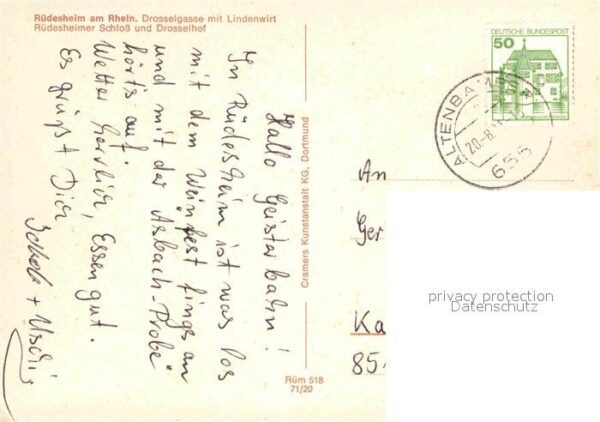 Rüdesheim am Rhein. Drosselgasse mit Lindenwirt
Rüdesheimer Schloß und Drosselhof
Hallo Geisterbahn!
In Rüdesheim ist was los
mit dem Weinfest fings an
und mit der Asbach-Probe
hörts auf.
Wetter herrlich, Essen gut.
Es grüßt Dich
+ Uschi
Cramers Kunstanstalt KG, Dortmund
Rüm 518
71/20
DEUTSCHE BUNDESPOST
50
ALTENBA
655
An
Ger
Ka
85
privacy protection
Datenschutz